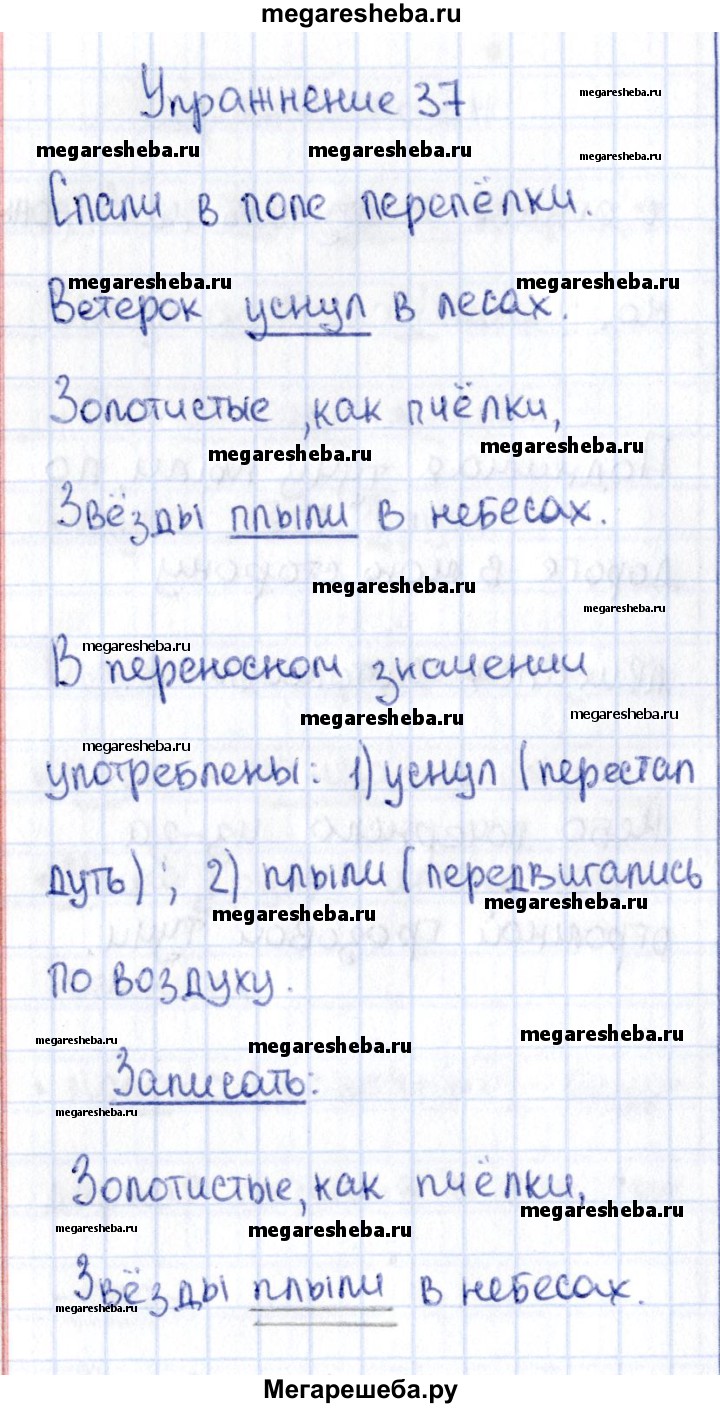 megaresheba.ru
Упражнение 37
megaresheba.ru
megaresheba.ru megaresheba.ru
megaresheba.ru
Спали в поле перепёлки.
megaresheba.ru megaresheba.ru
Ветерок уснул в лесах.
Золотистые, как пчёлки,
megaresheba.ru megaresheba.ru
Звёзды плыли в небесах.
megaresheba.ru
megaresheba.ru
megaresheba.ru
В переносном значении
megaresheba.ru megaresheba.ru
megaresheba.ru
употреблены: 1) уснул (перестал
дуть); 2) плыли (передвигались
megaresheba.ru megaresheba.ru
по воздуху.
megaresheba.ru megaresheba.ru megaresheba.ru
Записать:
megaresheba.ru
Золотистые, как пчёлки,
megaresheba.ru megaresheba.ru megaresheba.ru
Звёзды плыли в небесах.
megaresheba.ru
Мегарешеба.ру